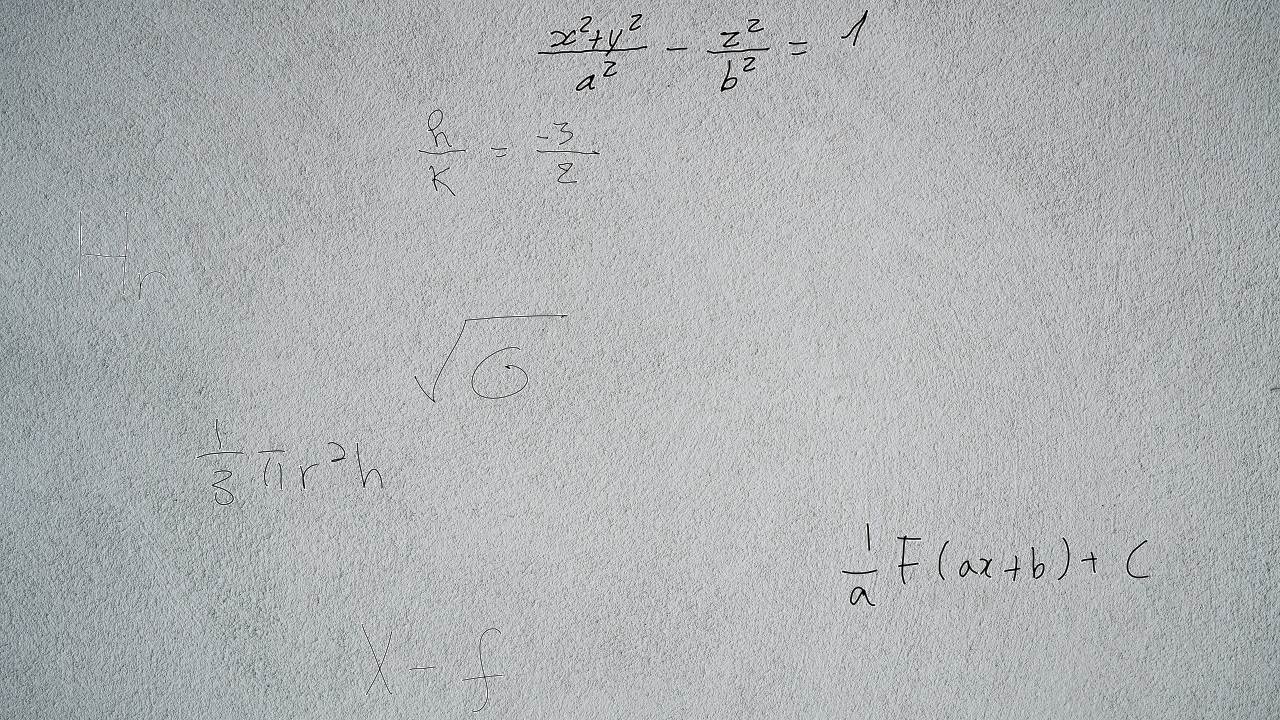 \frac{x^2+y^2}{a^2} - \frac{z^2}{b^2} = 1
\frac{h}{k} = \frac{-3}{2}
H_n
\sqrt{σ}
\frac{1}{3} π r^2 h
\frac{1}{a} F(ax+b) + C
X - f